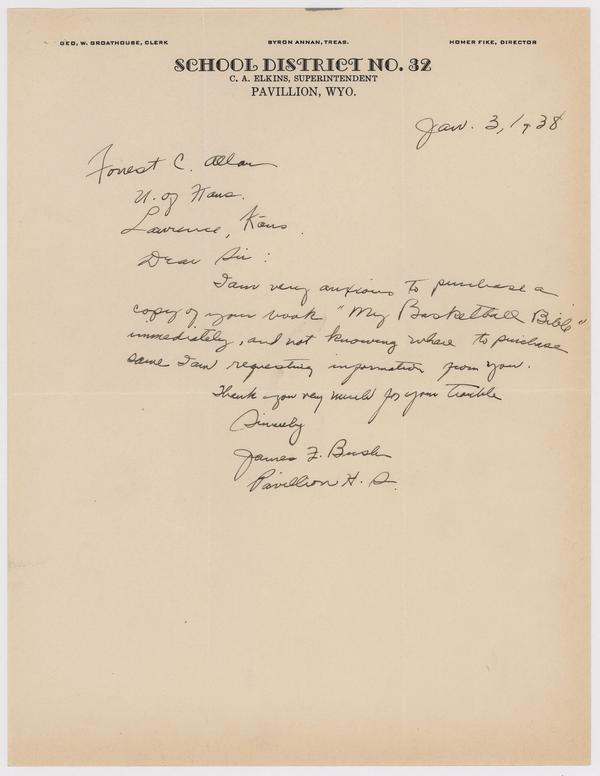 GEO. W. GROATHOUSE, CLERK BYRON ANNAN, TREAS. HOMER FIKE, DIRECTOR
SCHOOL DISTRICT NO. 32
C. A. ELKINS, SUPERINTENDENT
PAVILLION, WYO.
Jan. 3, 1938
Forrest C. Allan
U. of Kans.
Lawrence, Kans.
Dear Sir:
I am very anxious to purchase a
copy of your book "My Basketball Bible"
immediately, and not knowing where to purchase
same I am requesting information from you.
Thank you very much for your trouble
Sincerely
James F. Bush
Pavillion H. S.